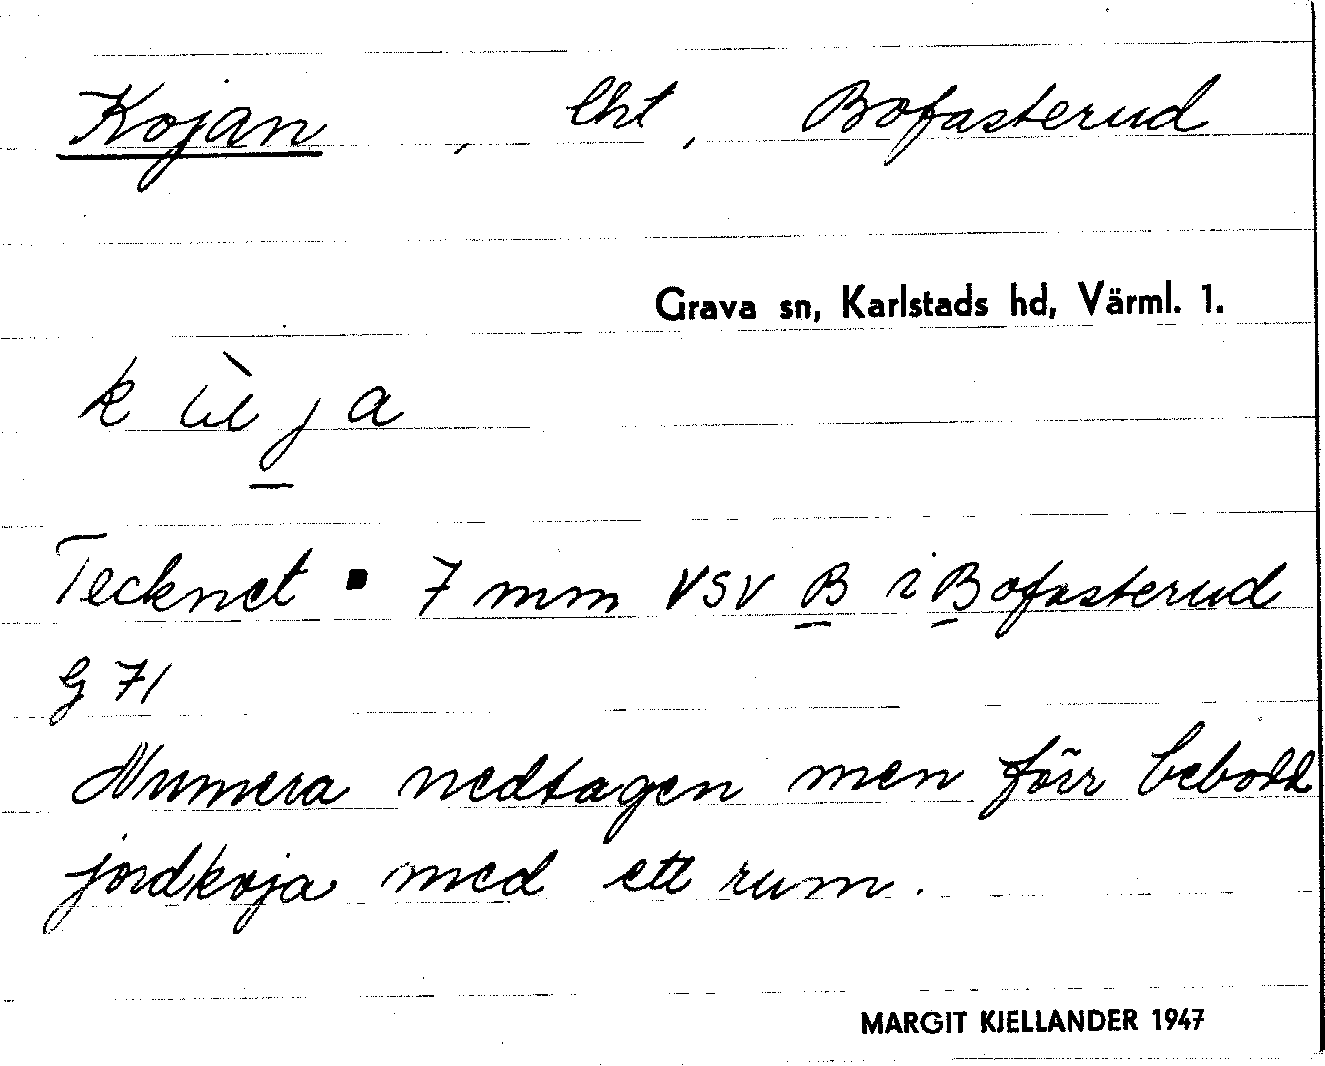 Kojan, lht, Bofasterud
Grava sn, Karlstads hd, Värml. 1.
Tecknet ▪ 7 mm VSV B i Bofasterud
G 71
Numera nedtagen men förr bebodd
jordkoja med ett rum.
MARGIT KJELLANDER 1947